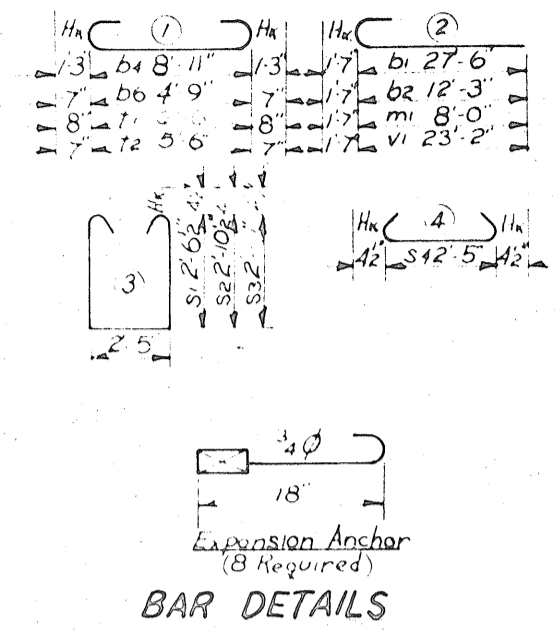 Hk 1 Hk Hk 2
1'-3" b4 8'-11" 1'-3" 1'-7" b1 27'-6"
7" b6 4'-9" 7" 1'-7" b2 12'-3"
8" t1 8" 1'-7" m1 8'-0"
7" t2 5'-6" 7" 1'-7" v1 23'-2"
Hk
3
S1 2'-6½"
S2 2'-10½"
S3 2'
4½"
2'-5"
Hk 4 Hk
4½" S4 2'-5" 4½"
¾ Ø
18"
Expansion Anchor
(8 Required)
BAR DETAILS